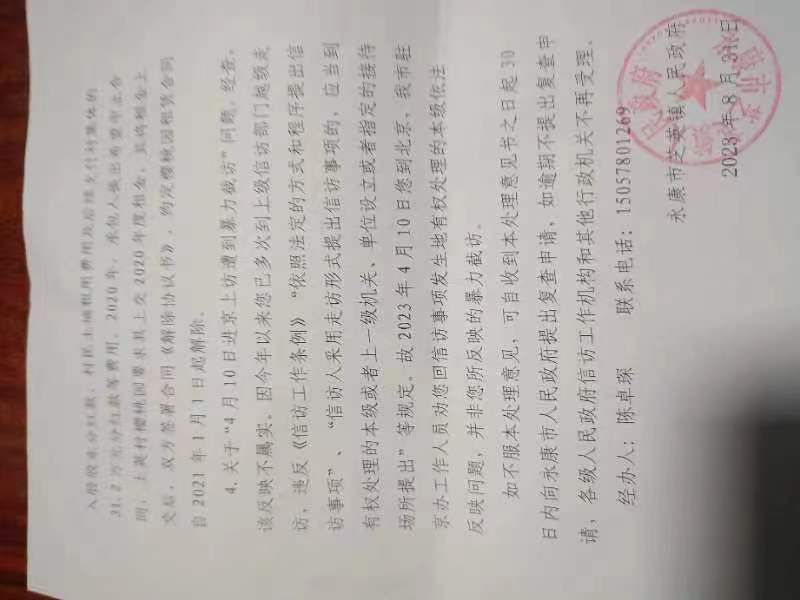 入股股东分红款、村民土地租用费用及后续支付村集体的
31.2万元分红款等费用。2020年，承包人提出希望中止合
同，上黄村樱桃园要求其上交2020年度租金，其将租金上
交后，双方签署合同《解除协议书》，约定樱桃园租赁合同
自2021年1月1日起解除。
4.关于“4月10日进京上访遭到暴力截访”问题。经查，
该反映不属实。因今年以来您已多次到上级信访部门越级走
访，违反《信访工作条例》“依照法定的方式和程序提出信
访事项”、“信访人采用走访形式提出信访事项的，应当到
有权处理的本级或者上一级机关、单位设立或者指定的接待
场所提出”等规定。故2023年4月10日您到北京，我市驻
京办工作人员劝您回信访事项发生地有权处理的本级依法
反映问题，并非您所反映的暴力截访。
如不服本处理意见，可自收到本处理意见书之日起30
日内向永康市人民政府提出复查申请，如逾期不提出复查申
请，各级人民政府信访工作机构和其他行政机关不再受理。
经办人：陈卓琛 联系电话：15057801269
永康市芝英镇人民政府
2023年8月31日